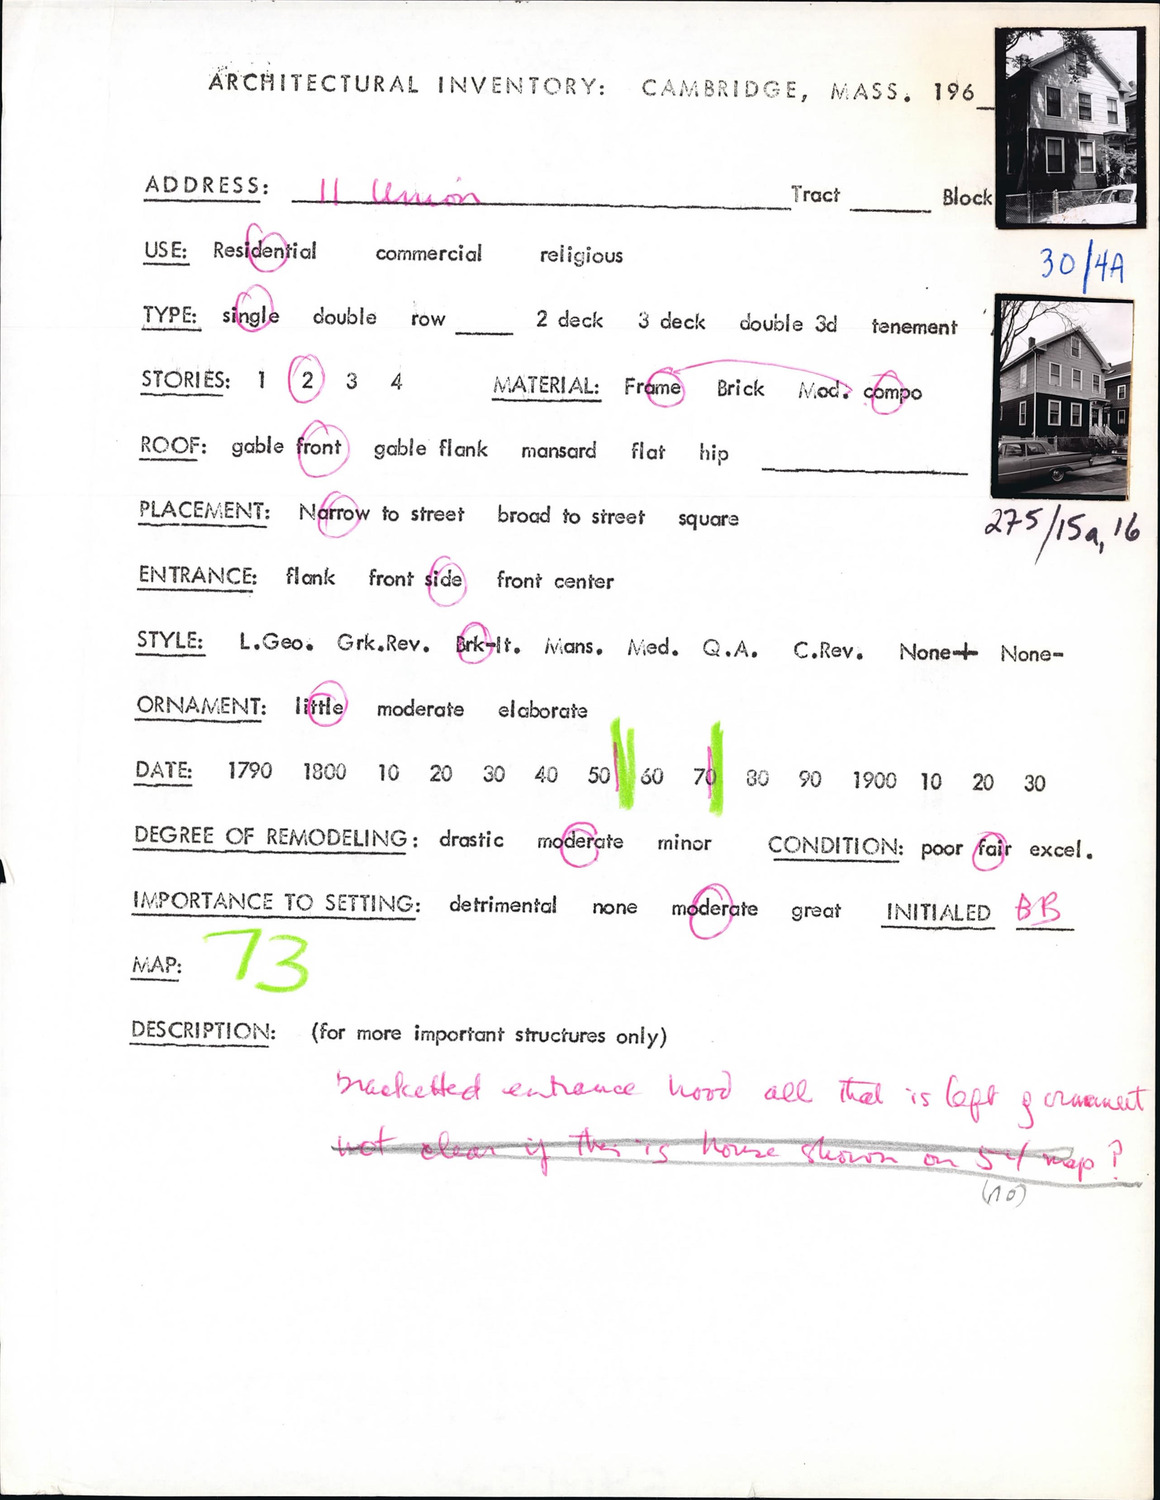 ARCHITECTURAL INVENTORY: CAMBRIDGE, MASS. 196_
ADDRESS: 11 Union Tract ____ Block
30/4A
USE: Residential commercial religious
TYPE: single double row ____ 2 deck 3 deck double 3d tenement
STORIES: 1 2 3 4 MATERIAL: Frame Brick Mod. compo
ROOF: gable front gable flank mansard flat hip ____
PLACEMENT: Narrow to street broad to street square
275/15a, 16
ENTRANCE: flank front side front center
STYLE: L.Geo. Grk.Rev. Brk-It. Mans. Med. Q.A. C.Rev. None+ None-
ORNAMENT: little moderate elaborate
DATE: 1790 1800 10 20 30 40 50 60 70 80 90 1900 10 20 30
DEGREE OF REMODELING: drastic moderate minor CONDITION: poor fair excel.
IMPORTANCE TO SETTING: detrimental none moderate great INITIALED BB
MAP: 73
DESCRIPTION: (for more important structures only)
bracketted entrance hood all that is left of ornament
not clear if this is house shown on 54 map?
(no)